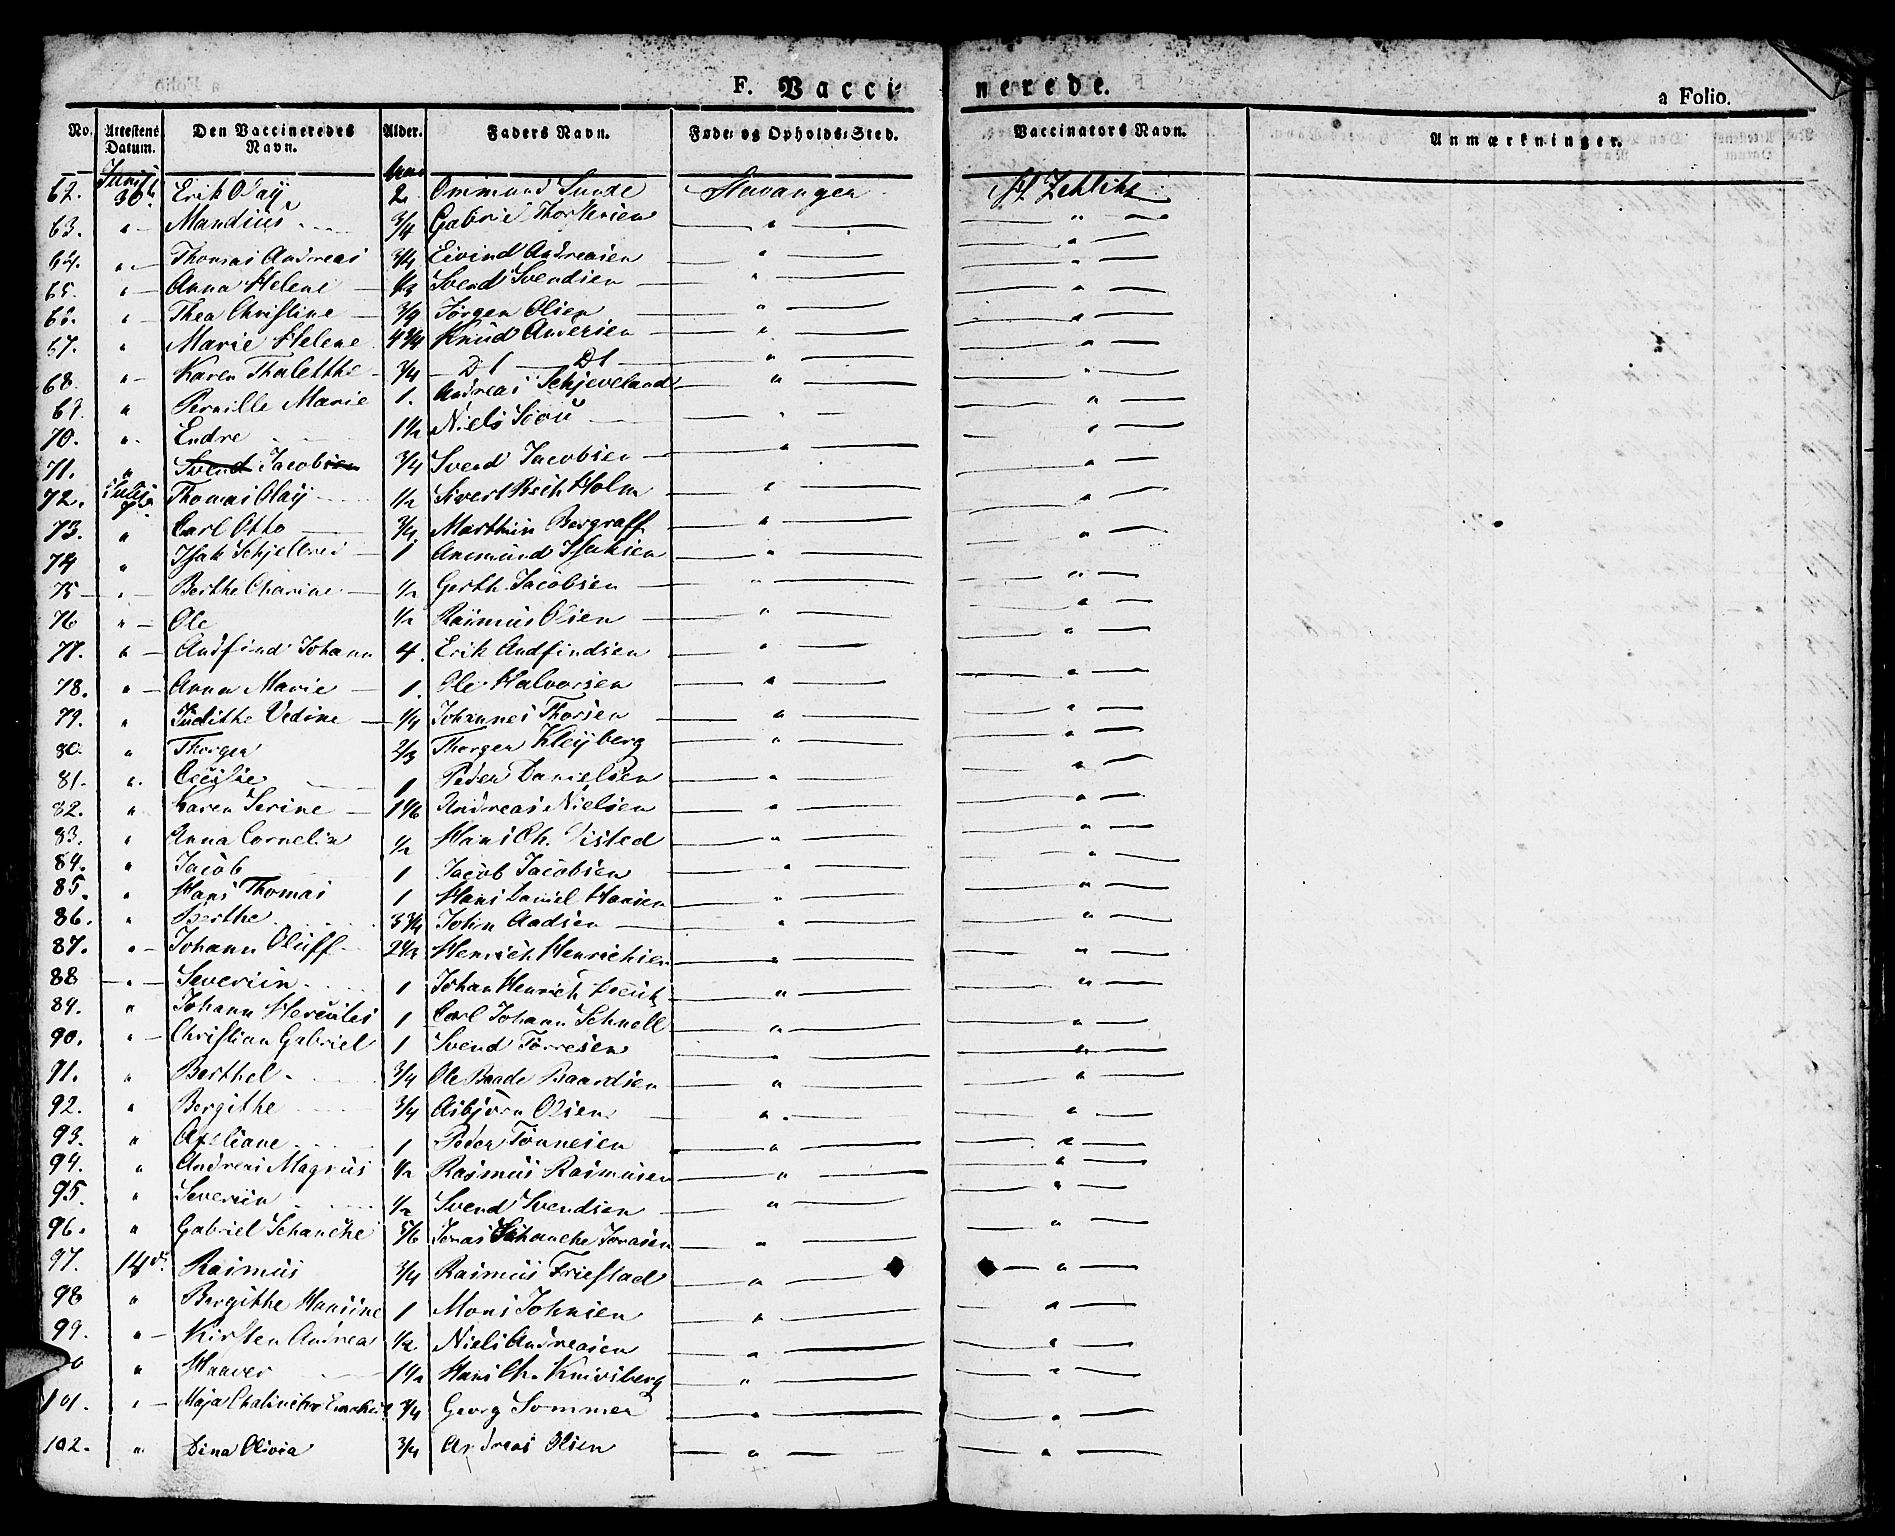 F. Vaccinerede. a Folio.
No. Attestens Datum. Den Vaccineredes Navn. Alder. Faders Navn. Føde- og Opholds-Sted. Vaccinators Navn. Anmærkninger.
62. Junij 30 Erik Olaÿ 2 Ommund Sunde Stavanger
63. " Mandius 3/4 Gabriel "  "
64. " Thomas Andreas 3/4 Eivind Andreasen " "
65. " Anna Helene Svend Svendsen " "
66. " Thea Christine Jörgen Olsen " "
67. " Marie Helene 4 3/4 Knud Andersen " "
68. " Karen 3/4 Dt Dt " "
69. " Pernille Marie 1. Andreas Schjeveland " "
70. " Endre 1 1/2 Niels " "
71. " Svend Jacobsen 3/4 Svend Jacobsen " "
72. Julij Thomas Olaÿ 1/2 Sivert Bech Holm " "
73. " Carl Otto 3/4 Marthin Bergraff " "
74 " Isak 1 Aamund Isaksen " "
75 " Berthe 1/2 Gerth Jacobsen " "
76 " Ole 1/2 Rasmus Olsen " "
77. " Andfind Johann 4. Erik Andfindsen " "
78. " Anna Marie 1. Ole Halvorsen " "
79. " Judithe Vedine 1/4 Johannes Thorsen " "
80. " Thorger 2/3 Thorger Kleÿberg " "
81. " Cecilie 1 Peder Danielsen " "
82. " Karen Serine 1 1/6 Andreas Nielsen " "
83. " Anna Cornelia 1/2 Hans Ch. Visted " "
84. " Jacob 1 Jacob Jacobsen " "
85. " Hans Thomas 1 Hans Daniel Hansen " "
86. " Berthe 3 3/4 John Aadsen " "
87. " Johann Oluff 2 1/2 Henrich Henrichsen " "
88 " Severin 1 Johan Henrich " "
89. " Johann Hercules 1 Carl Johann Schnell " "
90. " Christian Gabriel 1 Svend Törresen " "
91. " Berthel 3/4 Ole Baade Baardsen " "
92. " Bergithe 3/4 Asbjörn Olsen " "
93. " Axeliane 1 Peder Tönnesen " "
94. " Andreas Magnus 1/2 Rasmus Rasmusen " "
95. " Severin 1/2 Svend Svendsen " "
96. " Gabriel Schanche 5/6 Jonas Schanche Jonasen " "
97. 14 d. Rasmus 3/4 Rasmus Friestad " "
98 " Bergithe Hansine 1 Mons Johnsen " "
99. " Kirsten Andrea 1/2 Niels Andreasen " "
" Haaver 1 1/2 Hans Ch. Knivsberg " "
101. " Maja 3/4 Georg Sommer " "
102. " Dina Olivia 3/4 Andreas Olsen " "